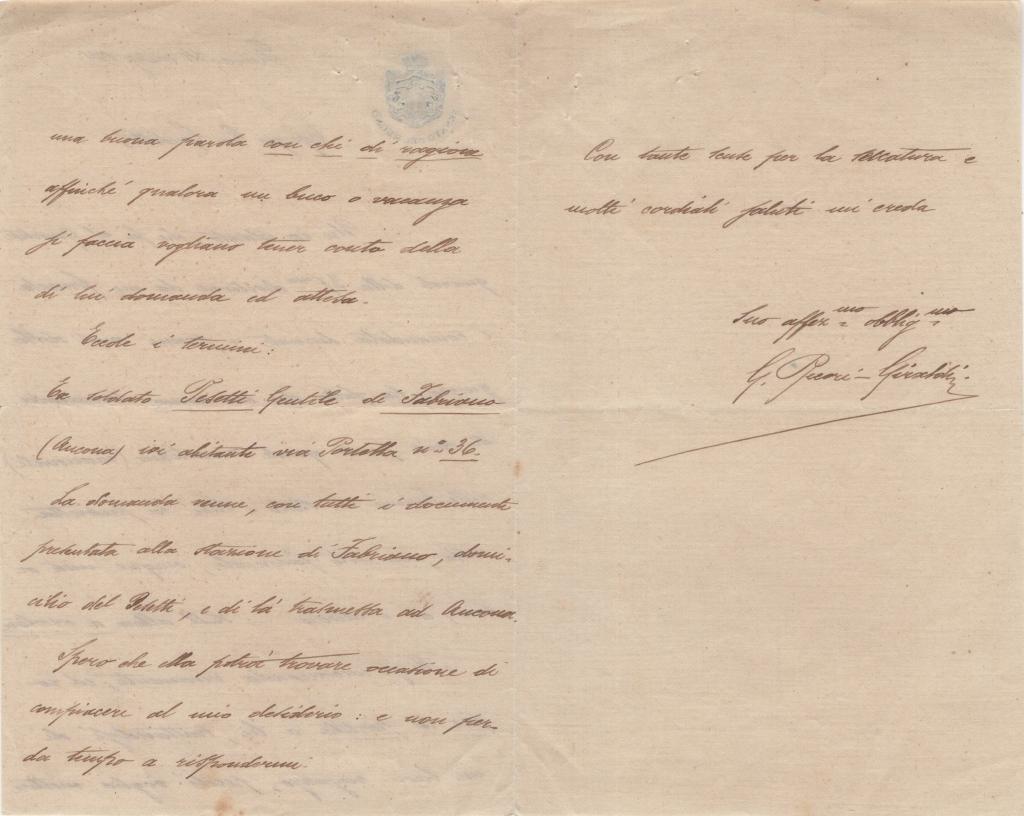 una buona parola con chi di ragione
affinché qualora un buco o vacanza
si faccia vogliano tener conto della
di lui domanda ed attesa.
Eccole i termini:
Ex soldato Pesetti Gentile di Fabriano
(Ancona) ivi abitante via Portella nº 36.
La domanda venne, con tutti i documenti
presentata alla stazione di Fabriano, domi-
cilio del Pesetti, e di là trasmessa ad Ancona.
Spero che ella potrà trovare occasione di
compiacere al mio desiderio: e non per-
da tempo a rispondermi.
Con tante scuse per la seccatura e
molti cordiali saluti mi creda
Suo affez.mo obblig.mo
G. Giraldi